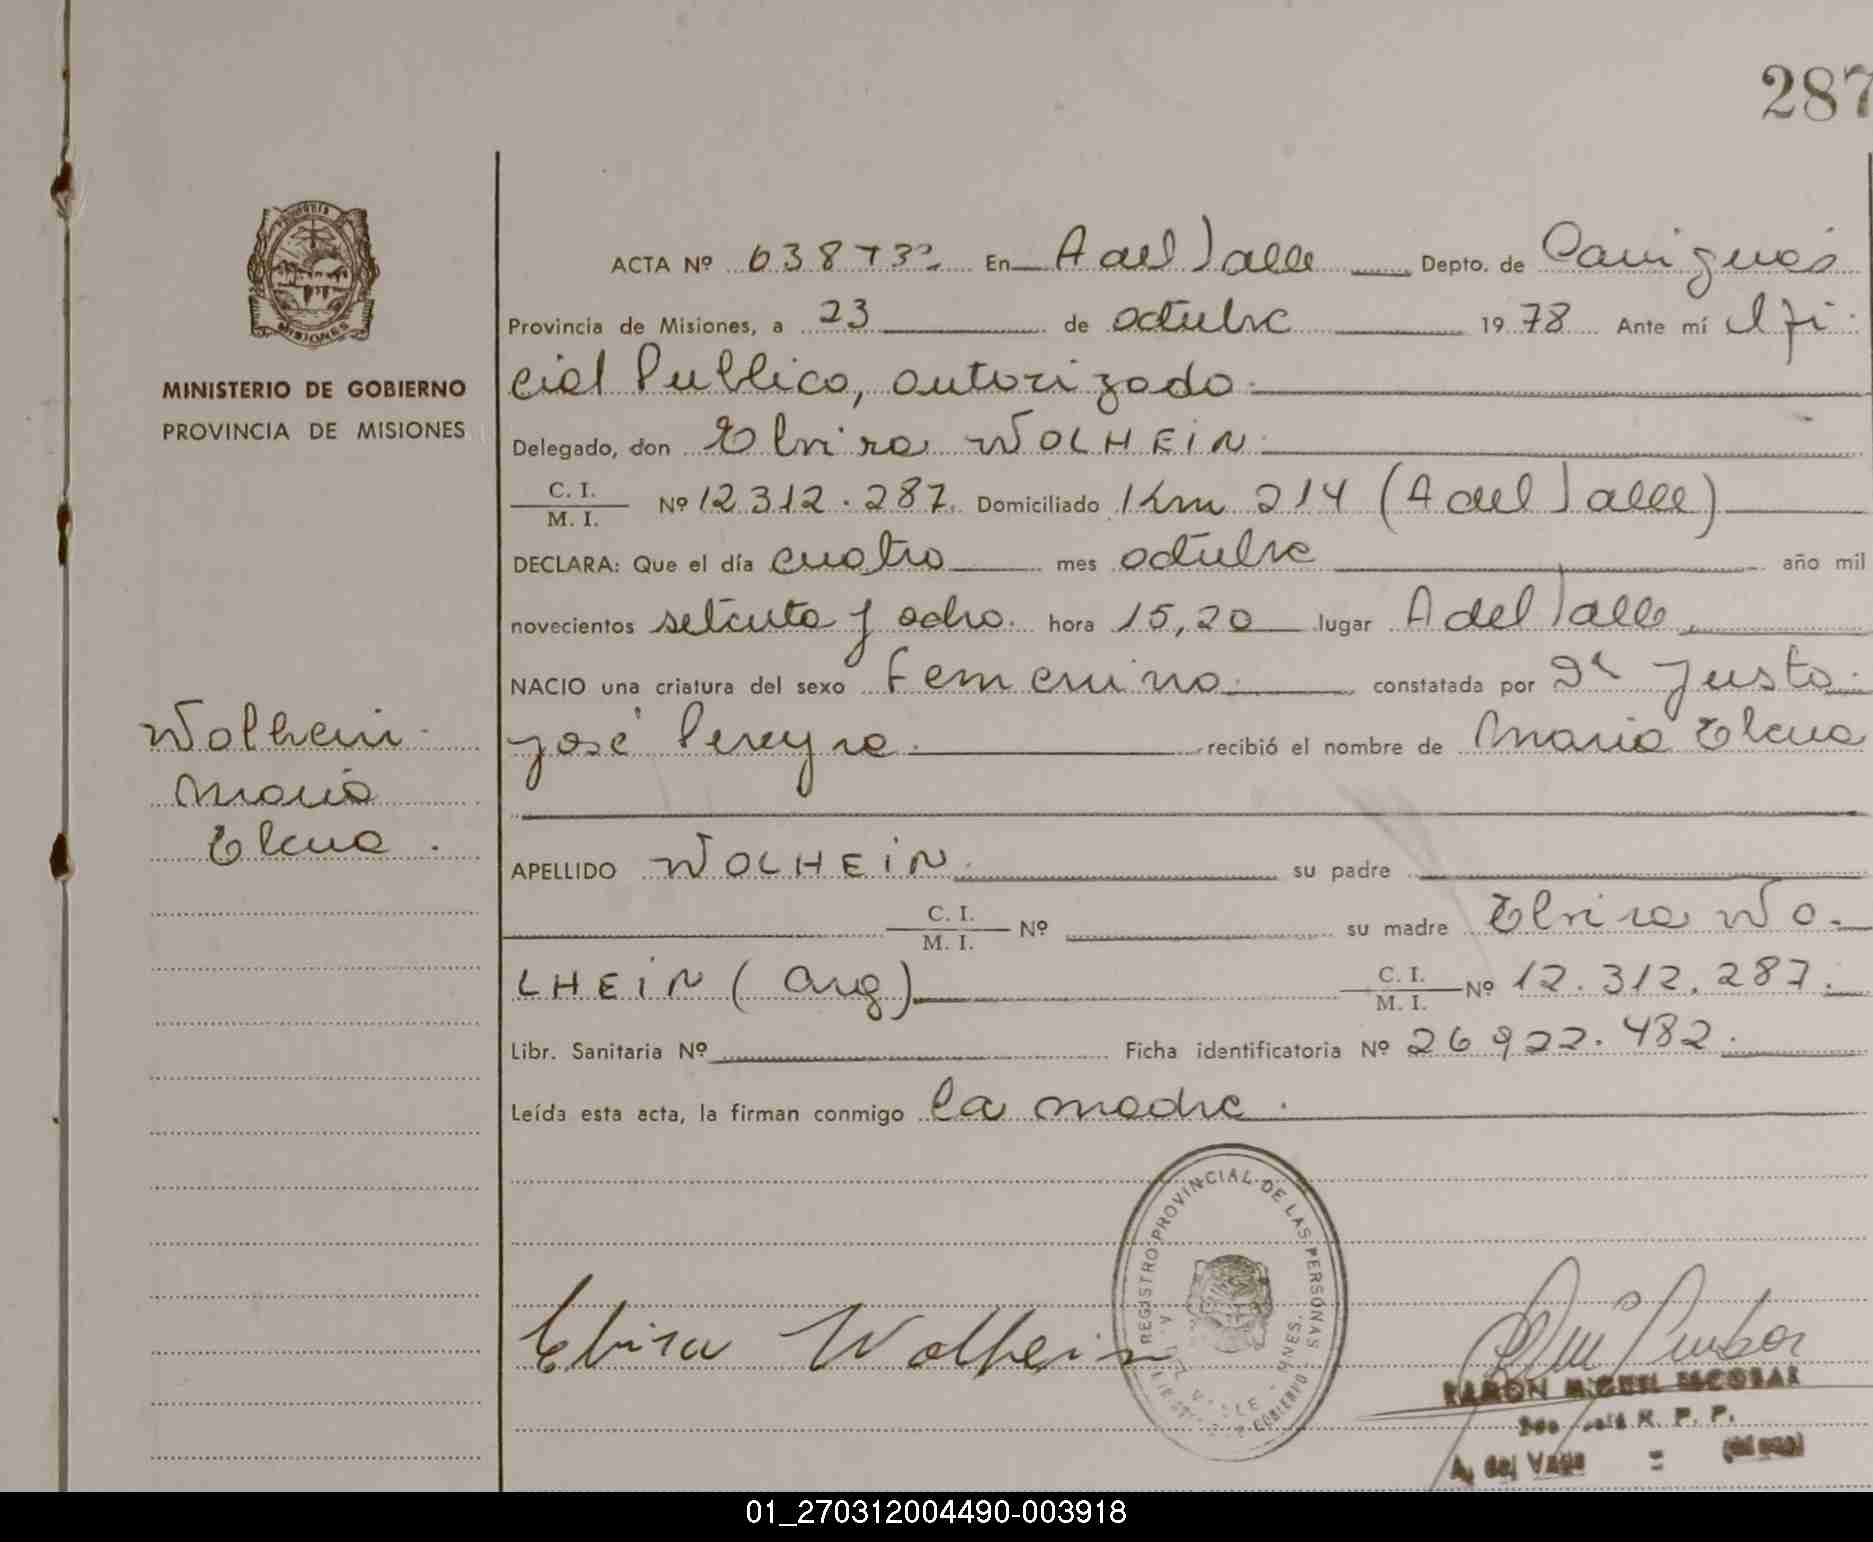 287
PROVINCIA
MISIONES
MINISTERIO DE GOBIERNO
PROVINCIA DE MISIONES
ACTA Nº 63873 En A del Valle Depto. de Cainguás
Provincia de Misiones, a 23 de octubre 1978 Ante mí Ofi
cial Publico, autorizado.
Delegado, don Elvira WOLHEIN.
C. I.
M. I. Nº 12.312.287. Domiciliado Km 214 (A del Valle)
DECLARA: Que el día cuatro mes octubre año mil
novecientos setenta y ocho. hora 15,20 lugar A del Valle.
NACIO una criatura del sexo femenino. constatada por Dr Justo
José Pereyra. recibió el nombre de Maria Elena
Wolhein.
Maria
Elena.
APELLIDO WOLHEIN. su padre
C. I.
M. I. Nº su madre Elvira WO-
LHEIN (Arg) C. I.
M. I. Nº 12.312.287.
Libr. Sanitaria Nº Ficha identificatoria Nº 26922.482.
Leída esta acta, la firman conmigo la madre.
REGISTRO PROVINCIAL DE LAS PERSONAS
Elvira Wolhein
RAMON MIGUEL ESCOBAR
R. P. P.
A. del Valle
01_270312004490-003918